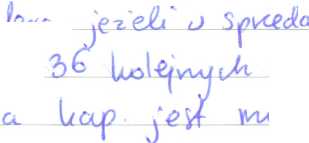 jeżeli w sprzeda
36 kolejnych
a kap. jest